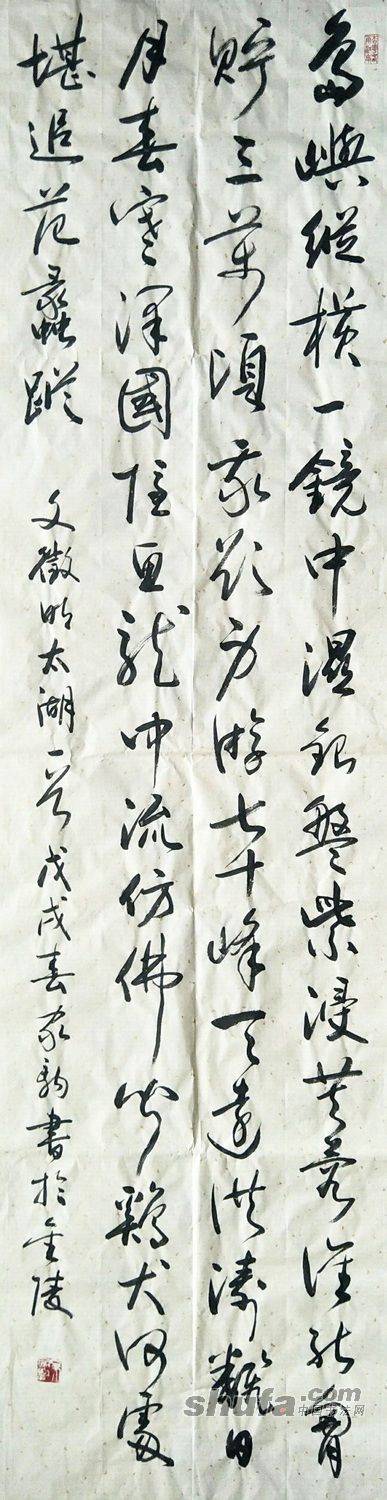 島嶼縱橫一鏡中濕銀盤紫浸芙蓉誰能胸
貯三萬頃我欲身游七十峰天遠洪濤翻日
月春寒澤國隱魚龍中流仿佛聞鷄犬何處
堪追范蠡蹤
文徵明太湖一首戊戌春家書於金陵
shufa.com
中国书法网